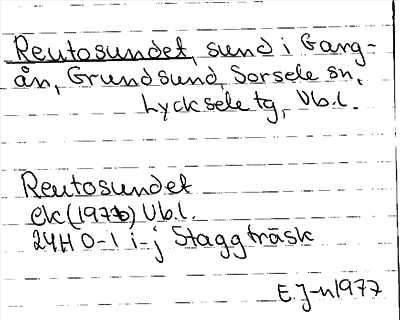 Reutosundet, sund i Gang-
ån, Grundsund, Sorsele sn,
Lycksele tg, Vb.l.
Reutosundet
ek (1976) Vb.l.
24H 0-1 i-j Staggträsk
E. J-n 1977